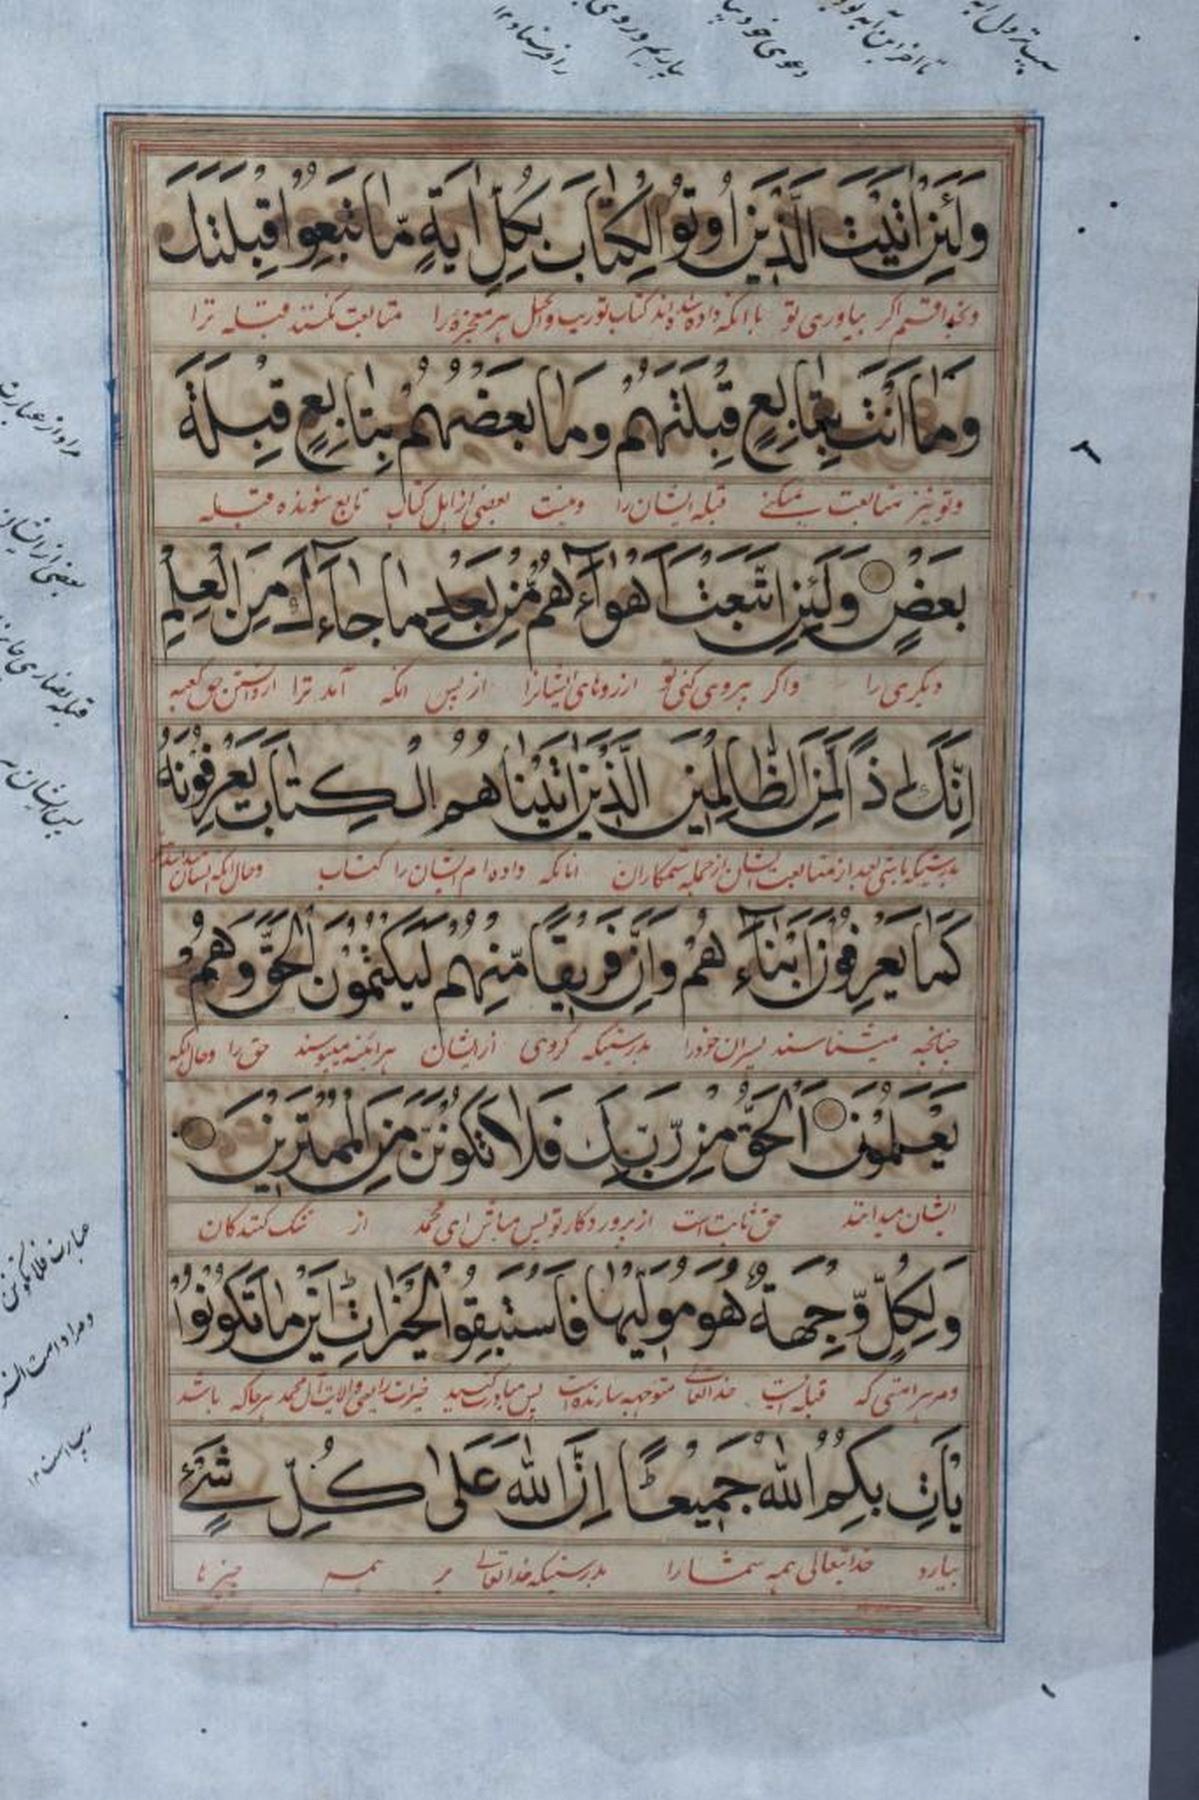 وَلَئِنْ اَتَيْتَ الَّذِيْنَ اُوتُوْا الْكِتَابَ بِكُلِّ اٰيَةٍ مَّا تَبِعُوْا قِبْلَتَكَ
وبخدا قسم اگر بیاوری تو بآنانکه داده شده‌اند کتاب توریت وانجیل هر معجزه را متابعت نکنند قبله ترا
وَمَا اَنْتَ بِتَابِعٍ قِبْلَتَهُمْ وَمَا بَعْضُهُمْ بِتَابِعٍ قِبْلَةَ
وتو نیز متابعت نمیکنی قبله ایشان را ونیست بعضی از اهل کتاب تابع شونده قبله
بَعْضٍ وَلَئِنِ اتَّبَعْتَ اَهْوَآءَهُمْ مِّنْ بَعْدِ مَا جَآءَكَ مِنَ الْعِلْمِ
دیگری را واگر پیروی کنی تو ارزوهای ایشانرا از پس انکه آمد ترا از دانستن حق کعبه
اِنَّكَ اِذًا لَّمِنَ الظَّالِمِيْنَ الَّذِيْنَ اٰتَيْنَاهُمُ الْكِتَابَ يَعْرِفُوْنَهُ
بدرستیکه باشی بعد از متابعت ایشان از جمله ستمکاران انانکه داده‌ام ایشان را کتاب وحال انکه ایشان
كَمَا يَعْرِفُوْنَ اَبْنَآءَهُمْ وَاِنَّ فَرِيْقًا مِّنْهُمْ لَيَكْتُمُوْنَ الْحَقَّ وَهُمْ
چنانچه میشناسند پسران خود را بدرستیکه گروهی از ایشان هراینه میپوشند حق را وحال انکه
يَعْلَمُوْنَ اَلْحَقُّ مِنْ رَّبِّكَ فَلَا تَكُوْنَنَّ مِنَ الْمُمْتَرِيْنَ
ایشان میدانند حق ثابت است از پروردکار تو پس مباش ای محمد از شک کنندکان
وَلِكُلٍّ وِّجْهَةٌ هُوَ مُوَلِّيْهَا فَاسْتَبِقُوا الْخَيْرَاتِ اَيْنَ مَا تَكُوْنُوْا
ومر هر امتی که قبله است خدایتعالی متوجهه سازنده است پس مبادرت کنید خیرات را یعنی ولایت آل محمد هر جا که باشد
يَاْتِ بِكُمُ اللّٰهُ جَمِيْعًا اِنَّ اللّٰهَ عَلٰى كُلِّ شَيْءٍ
بیارد خدایتعالی همه شما را بدرستیکه خدایتعالی بر همه چیزها
تا آخر این آیه
دعوی خود
بیاریم وروی
را فرستاد ۱۲
مراد از عبارت
بعضی از ایشان
قبله نصاری
پس ایشان
عبارت فلا تکونن
ومراد امت
است ۱۲